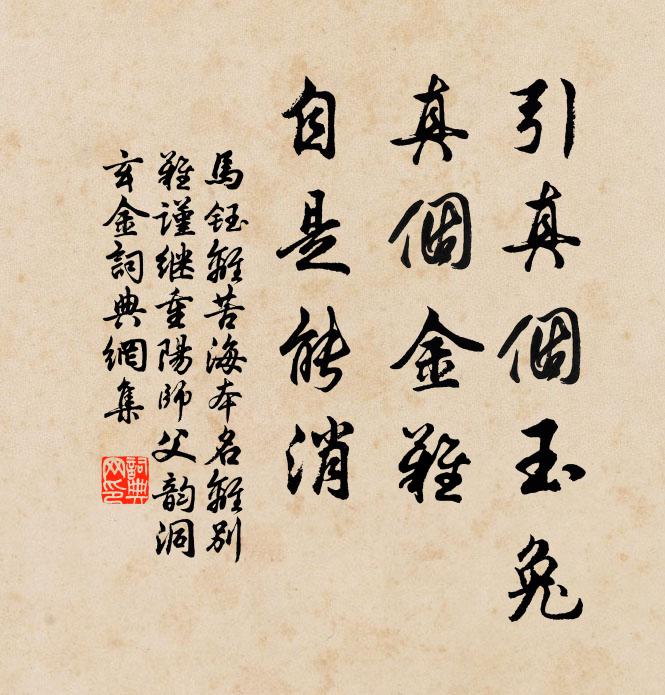 引真個玉兔
真個金雞
自是能消
馬鈺離苦海本名離別
難謹継重陽師父韵洞
玄金詞典網集
詞典
网印